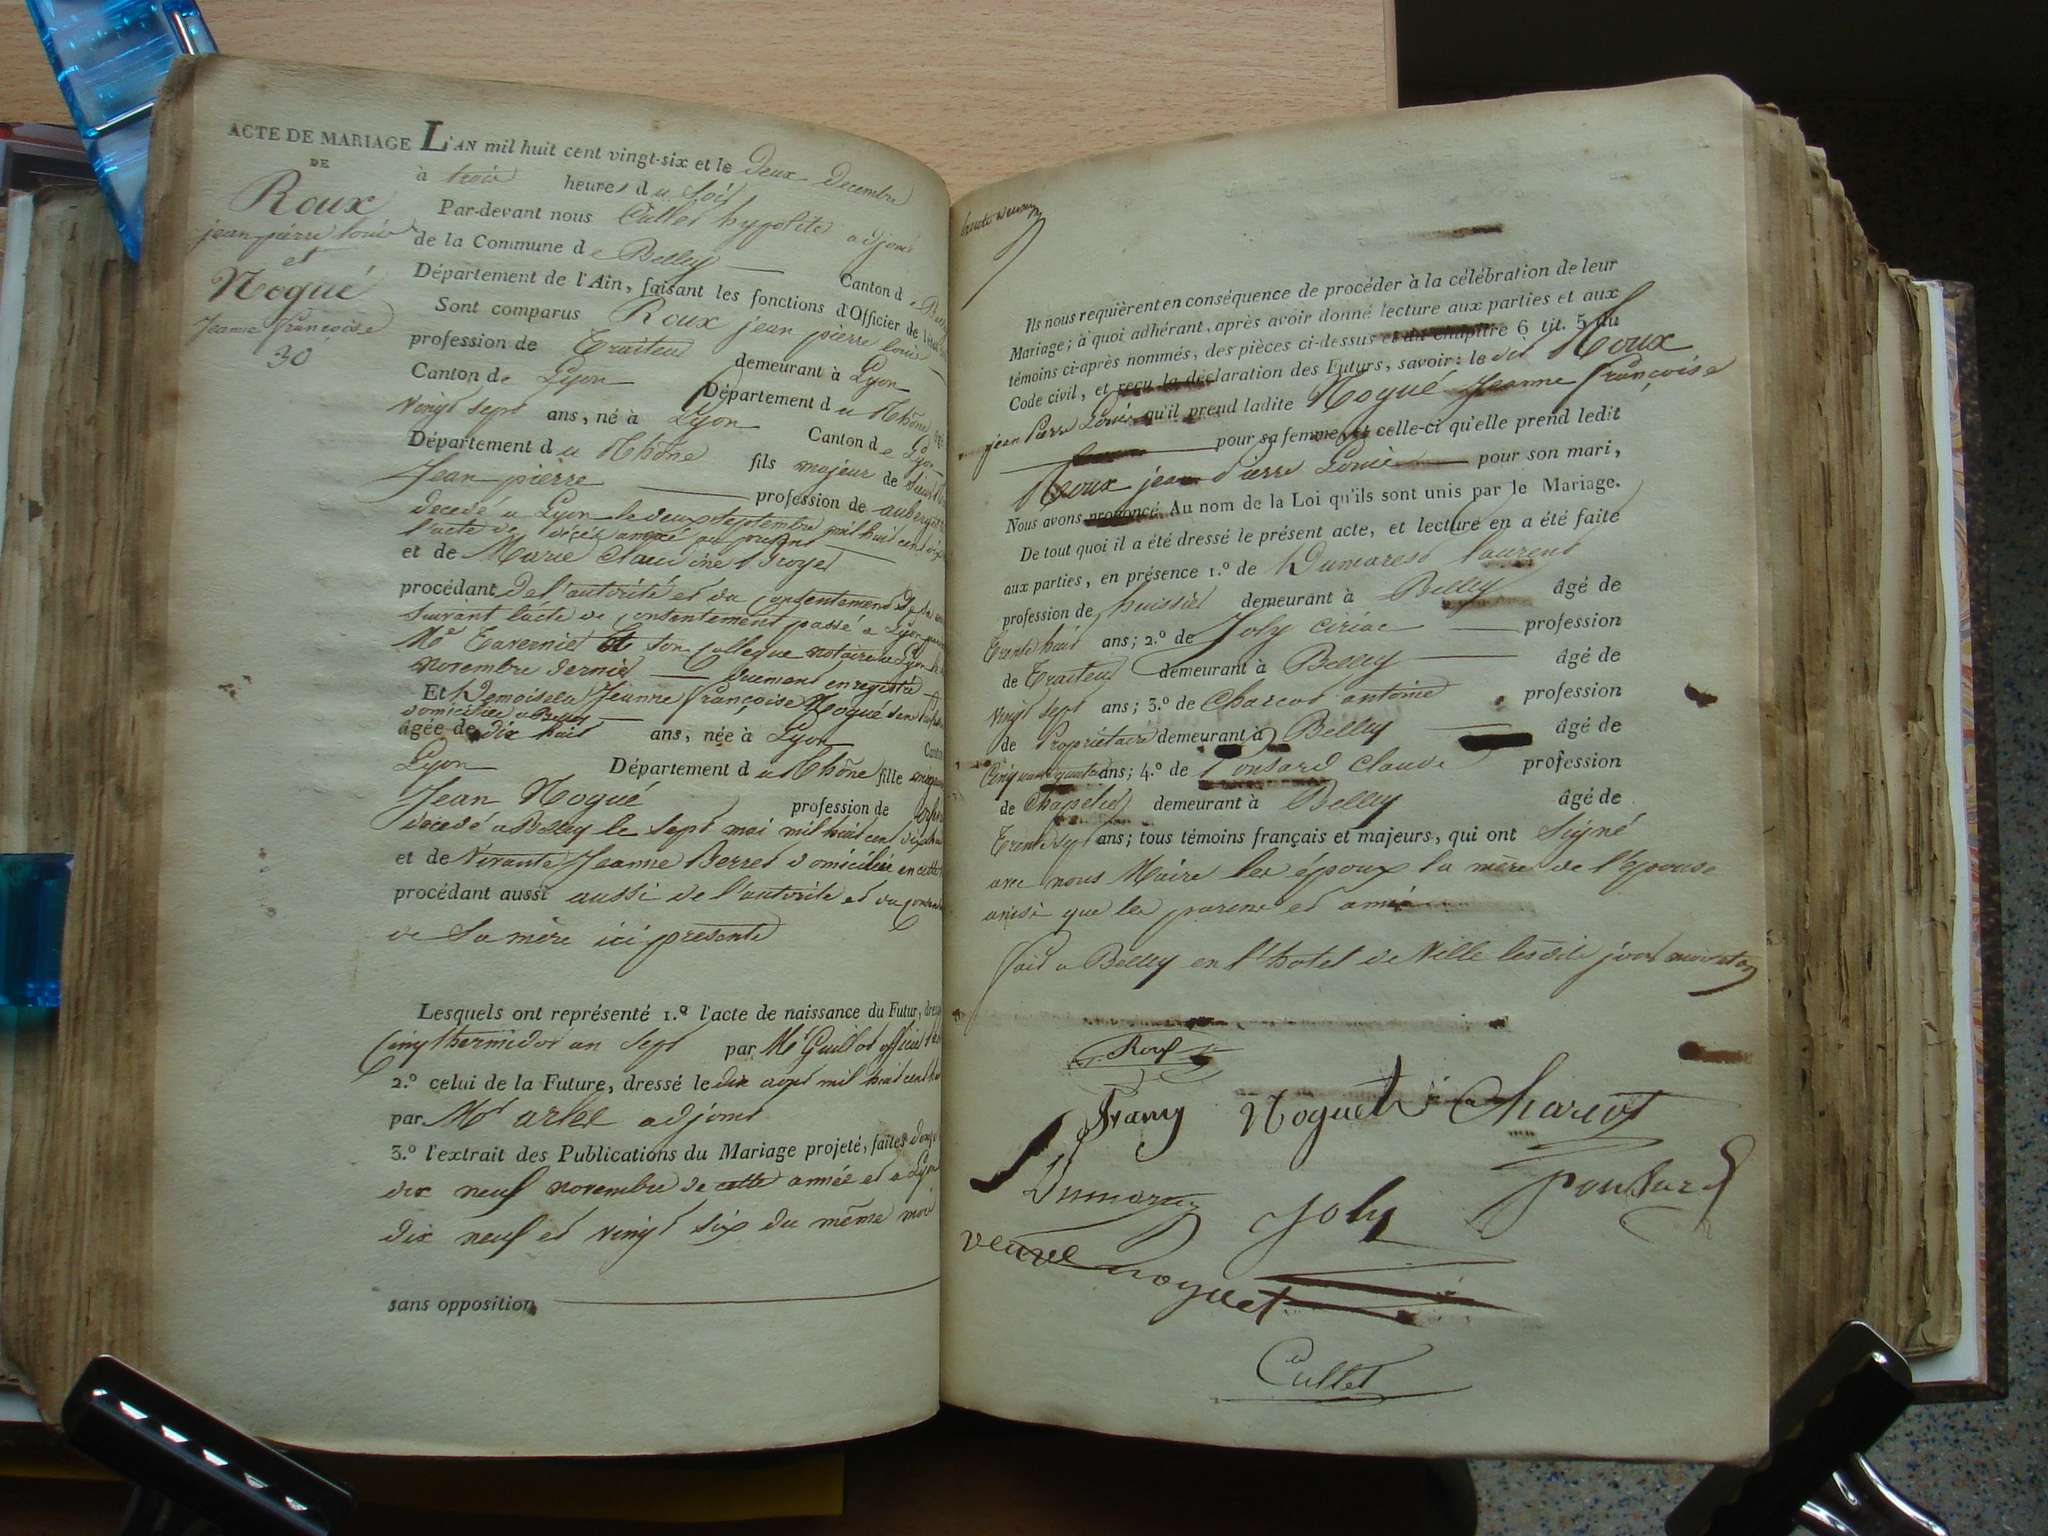 ACTE DE MARIAGE
DE
Roux
jean pierre louis
et
Nogué
Jeanne françoise
30
L'AN mil huit cent vingt-six et le deux Decembre
à trois heures du soir
Par-devant nous Cullet hypolite adjoint
de la Commune de Belley Canton de
Département de l'Ain, faisant les fonctions d'Officier de
Sont comparus Roux jean pierre louis
profession de Traiteur demeurant à Lyon
Canton de Lyon Département du Rhône
vingt sept ans, né à Lyon Canton de Lyon
Département du Rhône fils majeur de
Jean pierre profession de
decedé a Lyon le deux septembre mil huit cent
l'acte de décés annexé au présent
et de Marie Claudine
procédant de l'autorité et du consentement de
suivant l'acte de consentement passé a Lyon
Me Tavernier et son collegue notaire
novembre dernier duement enregistré
Et Demoiselle Jeanne françoise Nogué
domiciliée a Belley
âgée de dix huit ans, née à Lyon
Lyon Département du Rhône fille
Jean Nogué profession de
decedé a Belley le sept mai mil huit cent
et de vivante Jeanne Berret domiciliée en cette
procédant aussi aussi de l'autorité et du
de sa mère ici presente
Lesquels ont représenté 1.o l'acte de naissance du Futur,
Cinq thermidor an sept par Mr Guillot officier
2.o celui de la Future, dressé le dix aout mil huit cent
par Mr adjoint
3.o l'extrait des Publications du Mariage projeté, faites
dix neuf novembre de cette année et a Lyon
dix neuf et vingt six du même mois
sans opposition
Ils nous requièrent en conséquence de procéder à la célébration de leur
Mariage; à quoi adhérant, après avoir donné lecture aux parties et aux
témoins ci-après nommés, des pièces ci-dessus et du chapitre 6 tit. 5 du
Code civil, et reçu la déclaration des Futurs, savoir: le dit Roux
jean Pierre Louis qu'il prend ladite Nogué Jeanne françoise
pour sa femme, et celle-ci qu'elle prend ledit
Roux jean Pierre Louis pour son mari,
Nous avons prononcé Au nom de la Loi qu'ils sont unis par le Mariage.
De tout quoi il a été dressé le présent acte, et lecture en a été faite
aux parties, en présence 1.o de Dumarest laurent
profession de huissier demeurant à Belley âgé de
Trente huit ans; 2.o de Joly ciriac profession
de Traiteur demeurant à Belley âgé de
vingt sept ans; 3.o de Charcot antoine profession
de Propriétaire demeurant à Belley âgé de
ans; 4.o de Ponsard claude profession
de Chapelier demeurant à Belley âgé de
Trente sept ans; tous témoins français et majeurs, qui ont signé
avec nous Maire les époux la mère de l'épouse
ainsi que les parens et amis
fait a Belley en l'hotel de Ville lesdits jour mois et an
Roux
Frany Noguet Charcot
Dumarest Joly Ponsard
veuve noguet
Cullet